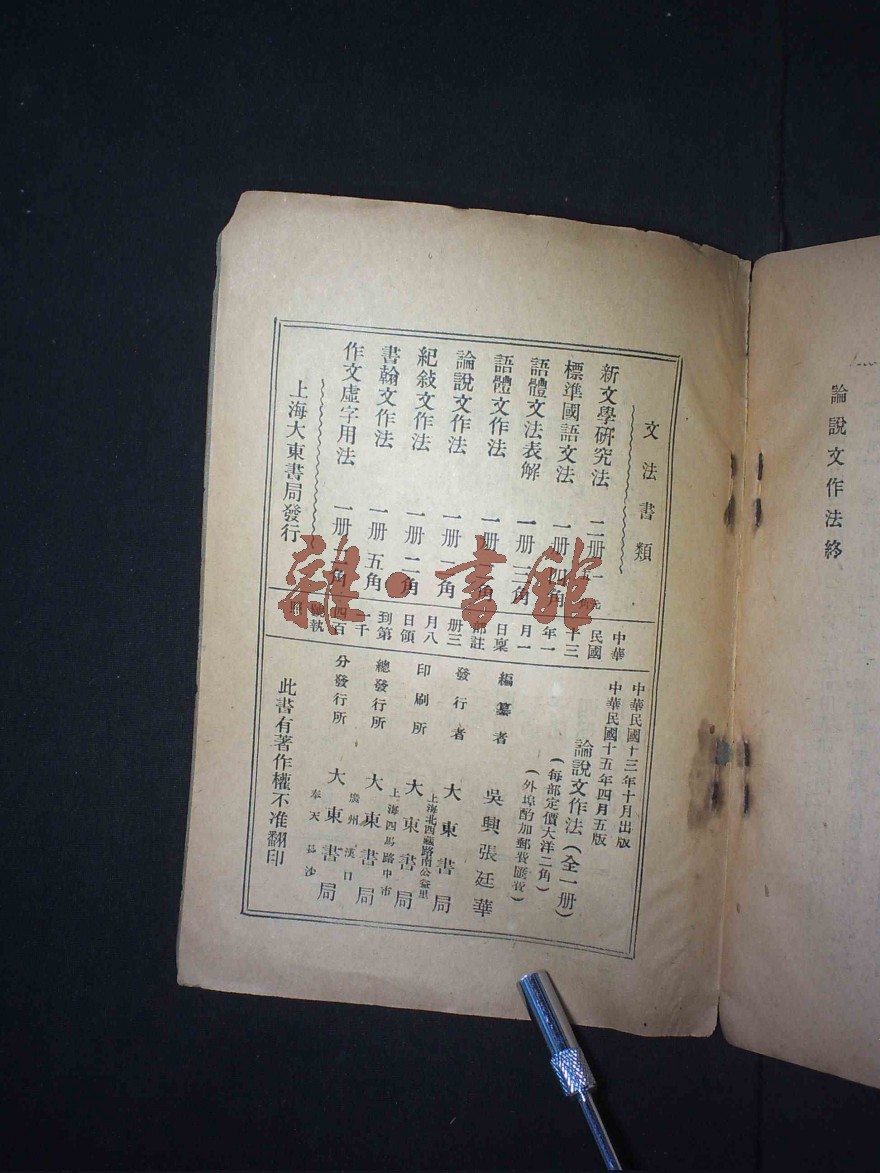 論說文作法終
文法書類
新文學研究法 二册 一元五角
標準國語文法 一册 四角
語體文法表解 一册 三角
語體文作法 一册 角
論說文作法 一册 角
紀敍文作法 一册 二角
書翰文作法 一册 五角
作文虛字用法 一册 角
上海大東書局發行
中華
民國
十三
年一
月一
日稟
部註
册三
月八
日領
到第
一千
四百
號執
照
中華民國十三年十月出版
中華民國十五年四月五版
論說文作法(全一册)
(每部定價大洋二角)
(外埠酌加郵費匯費)
編纂者 吳興張廷華
發行者 大東書局
上海北西藏路南公益里
印刷所 大東書局
上海四馬路中市
總發行所 大東書局
廣州 漢口
分發行所 大東書局
奉天 長沙
此書有著作權不准翻印
雜·書館